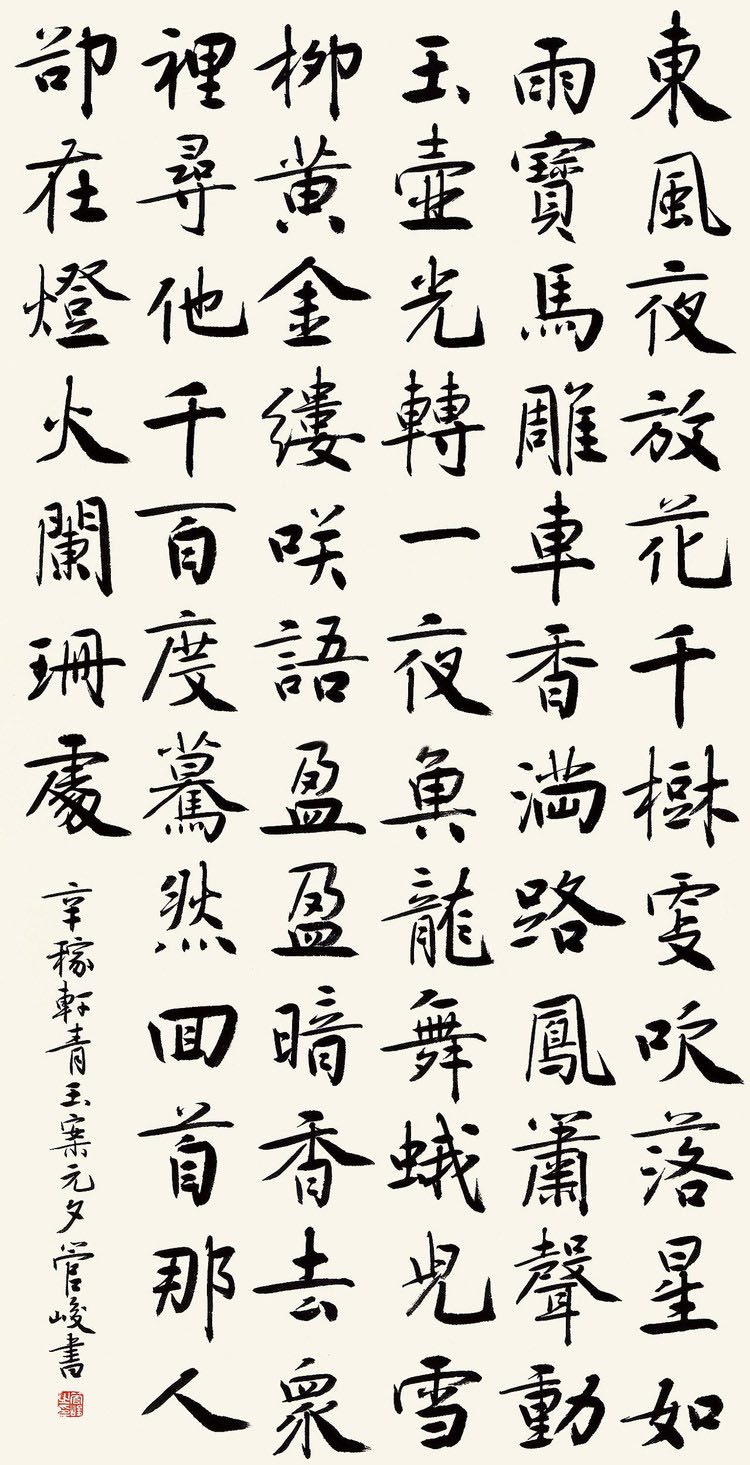 東風夜放花千樹更吹落星如
雨寶馬雕車香滿路鳳蕭聲動
玉壺光轉一夜魚龍舞蛾兒雪
柳黃金縷咲語盈盈暗香去眾
裡尋他千百度驀然回首那人
卻在燈火闌珊處
辛稼軒青玉案元夕管峻書